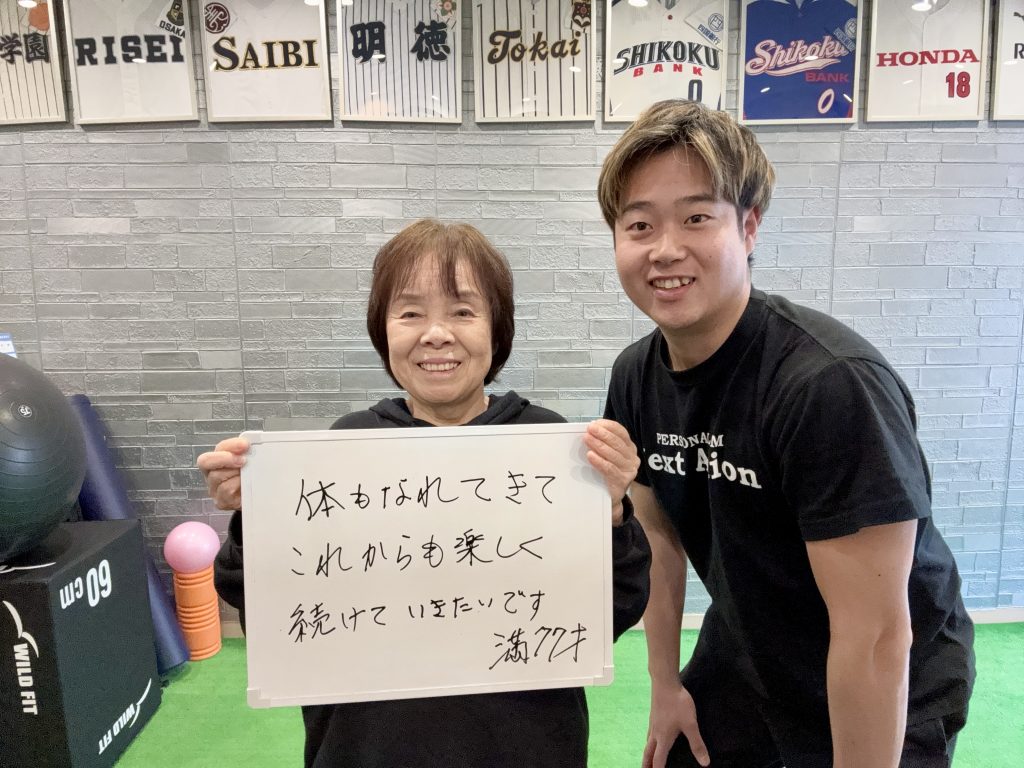 学園
RISEI
OSAKA
SAIBI
明徳
Tokai
SHIKOKU
BANK
0
Shikoku
BANK
0
HONDA
18
体もなれてきて
これからも楽しく
続けていきたいです
満77才
PERSONAL
Next
60cm
WILD FIT
WILD FIT